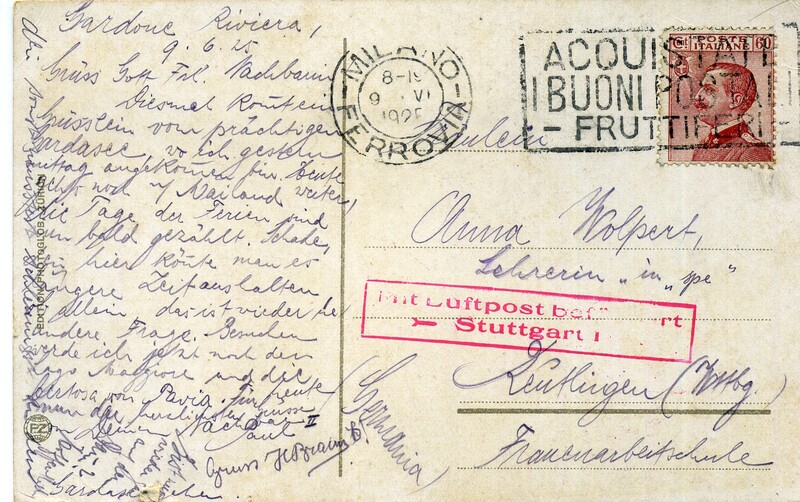 Gardone Riviera,
9.6.25
Grüss Gott Frl. Nachbarin
Diesmal kommt ein
Grüsslein vom prächtigen
Gardasee, wo ich gestern
mittag angekommen bin. Heute
geht's noch n/ Mailand weiter,
die Tage der Ferien sind
nun bald gezählt. Schade,
hier könte man es
längere Zeit aushalten
allein das ist wieder eine
andere Frage. Besuchen
werde ich jetzt noch den
Lago Maggiore und die
Certosa von Pavia. Für heute
nun die herzlichsten Grüsse
von Deinem Nachbar
Paul II
Gruss
Gardasee
EDITION PHOTOGLOB, ZÜRICH
PZ
MILANO
8-19
9 VI
1925
FERROVIA
ACQUISTATE
I BUONI POSTALI
- FRUTTIFERI -
POSTE
ITALIANE
60
Fräulein
Anna Wolpert,
Lehrerin „in spe“
Mit Luftpost befördert
Stuttgart 1
Reutlingen (Wttbg.)
Frauenarbeitschule
(Germania)